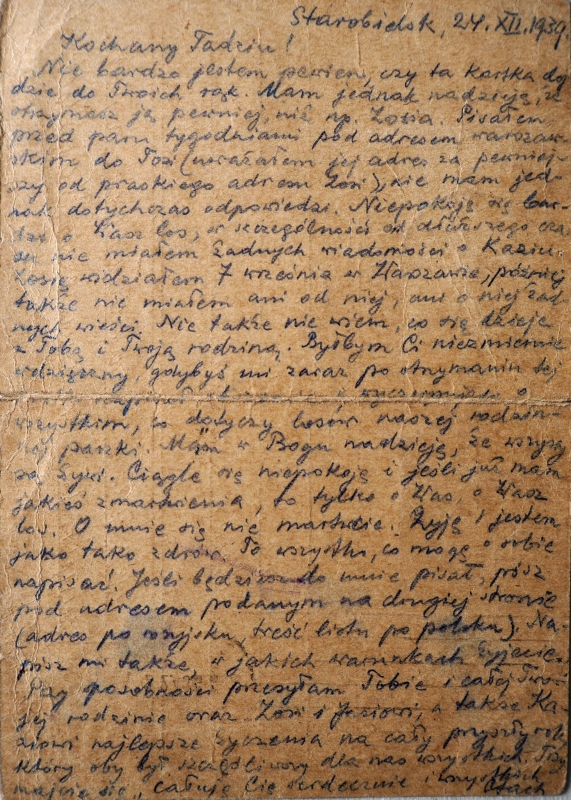 Starobielsk, 24.XII.1939.
Kochany Tadziu!
Nie bardzo jestem pewien, czy ta kartka doj
dzie do Twoich rąk. Mam jednak nadzieję, że
otrzymasz ją pewniej, niż np. Zosia. Pisałem
przed paru tygodniami pod adresem warszaw
skim do Tosi (uważałem jej adres za pewniej-
szy od praskiego adresu Zosi), nie mam jed-
nak dotychczas odpowiedzi. Niepokoję się bar-
dzo o Wasz los, w szczególności od dłuższego cza
su nie miałem żadnych wiadomości o Kaziu.
Zosię widziałem 7 września w Warszawie, później
także nie miałem ani od niej, ani o niej żad
nych wieści. Nie także nie wiem, co się dzieje
z Tobą i Twoją rodziną. Byłbym Ci niezmiernie
wdzięczny, gdybyś mi zaraz po otrzymaniu tej
o
wszystkim, co dotyczy losów naszej rodzin-
nej paczki. Mam w Bogu nadzieję, że wszyscy
są żywi. Ciągle się niepokoję i jeśli już mam
jakieś zmartwienia, to tylko o Was, o Wasz
los. O mnie się nie martwcie. Żyję i jestem
jako tako zdrów. To wszystko, co mogę o sobie
napisać. Jeśli będziesz do mnie pisał, pisz
pod adresem podanym na drugiej stronie
(adres po rosyjsku, treść listu po polsku). Na-
pisz mi także, w jakich warunkach żyjecie.
Przy sposobności przesyłam Tobie i całej Two
jej rodzinie oraz Zosi i Józiowi, a także Ka
ziowi najlepsze życzenia na cały przyszły rok
który oby był szczęśliwy dla nas wszystkich. Trzy
majcie się, całuję Cię serdecznie i wszystkich